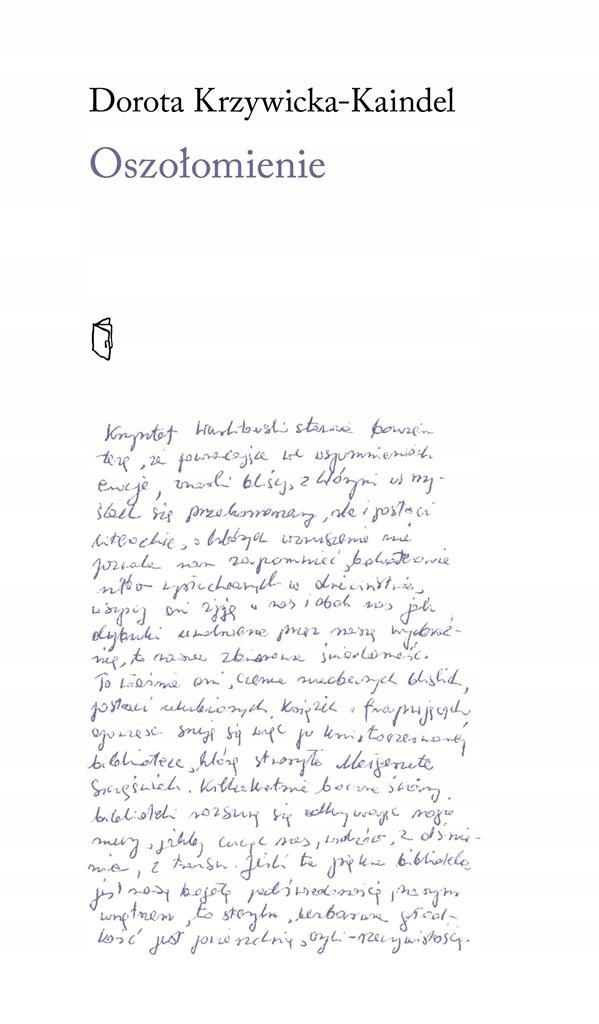 Dorota Krzywicka-Kaindel
Oszołomienie
Krzysztof Warlikowski stawia bowiem
tezę, że powracające we wspomnieniach
emocje, zmarli bliscy, z którymi w my-
ślach się przekomarzamy, ale i postaci
literackie, o których wzruszenie nie
pozwala nam zapomnieć, bohaterowie
mitów wysłuchanych w dzieciństwie,
wszyscy oni żyją w nas i obok nas jak
dybuki uwolnione przez naszą wyobraź-
nię, to nasza zbiorowa świadomość.
To właśnie oni, cienie nieobecnych bliskich,
postaci ulubionych książek i frapujących
opowieści snują się więc po
bibliotece, którą stworzyła Małgorzata
Szczęśniak. Kilkakrotnie boczne ściany
biblioteki rozsuną się odkrywając
jakby cucąc nas, widzów, z
z transu. Jeśli ta piękna biblioteka
jest naszą bogatą podświadomością, naszym
wnętrzem, to sterylna, bezbarwna gład-
kość jest powierzchnią, czyli - rzeczywistością.